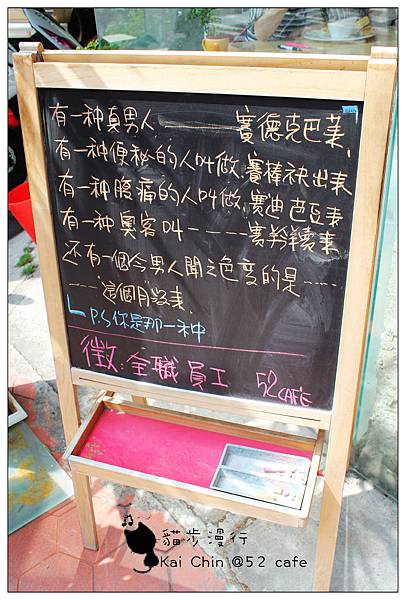 有一种真男人————賽德克巴萊、
有一种便秘的人叫做、賽棒袂出來
有一种腹痛的人叫做、賽迪巴豆來
有一种奧客叫-----賽
还有一個令男人聞之色变的是----
----這個月沒來.
P.S 你是那一种
徵:全職員工 52 CAFE
貓步漫行
Kai Chin @52 cafe